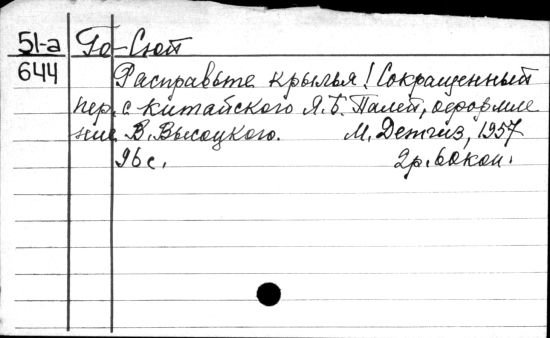 51-а Го-Сюй
644 Расправьте крылья! Сокращенный
пер. с китайского Я.Б. Палей, оформле
ние В. Высоцкого. М. Детгиз, 1957
96 с. 2р. 60коп.